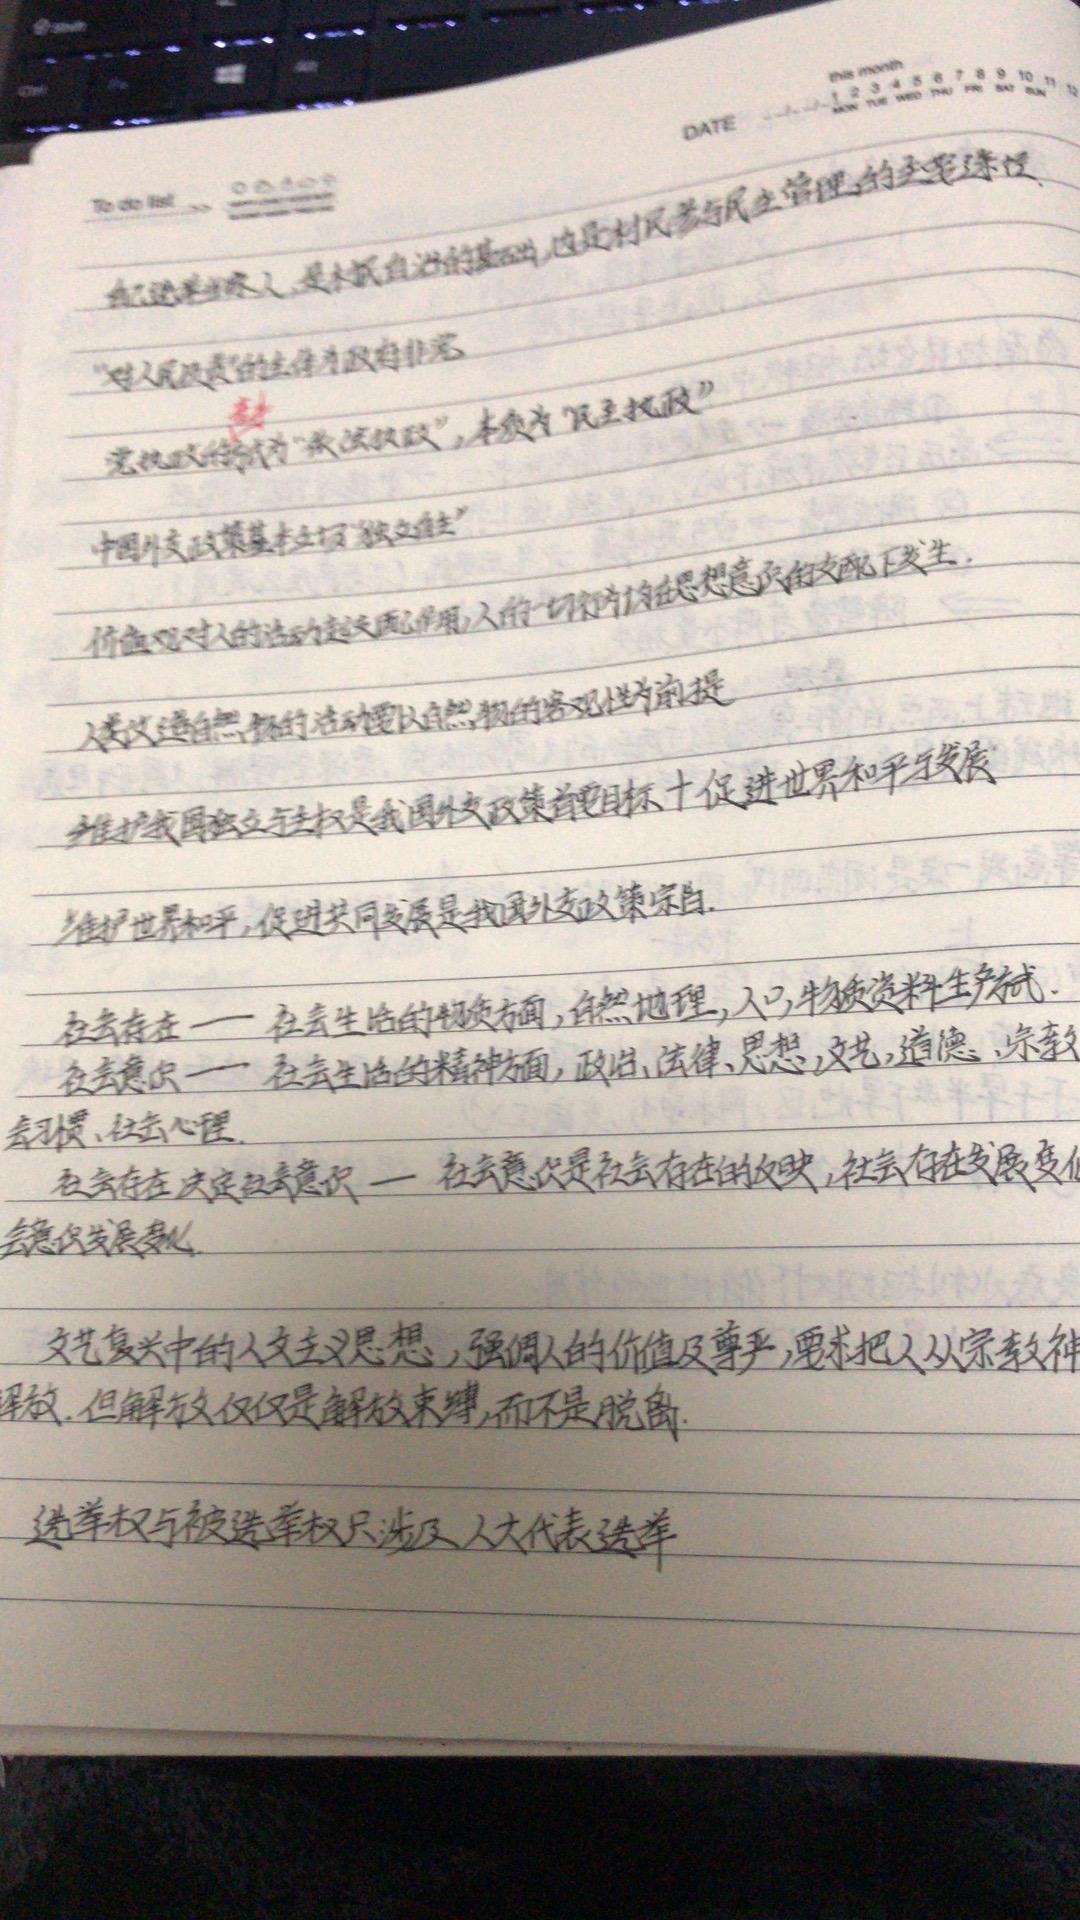 this month
DATE 1 2 3 4 5 6 7 8 9 10 11 12
MON TUE WED THU FRI SAT SUN
To do list
自己选举当家人,是村民自治的基础,也是村民参与民主管理的主要途径
"对人民负责"的主体为政府非党
党执政的方式为"依法执政",本质为"民主执政"
中国外交政策基本立场"独立自主"
价值观对人的活动起支配作用,人的一切行为均在思想意识的支配下发生.
人类改造自然物的活动要以自然物的客观性为前提
维护我国独立与主权是我国外交政策首要目标 + 促进世界和平与发展
维护世界和平,促进共同发展是我国外交政策宗旨.
社会存在 — 社会生活的物质方面,自然地理,人口,物质资料生产方式.
社会意识 — 社会生活的精神方面,政治、法律、思想,文艺,道德、宗教
会习惯、社会心理.
社会存在决定社会意识 — 社会意识是社会存在的反映,社会存在发展变化
会意识发展变化
文艺复兴中的人文主义思想,强调人的价值及尊严,要求把人从宗教神
解放.但解放仅仅是解放束缚,而不是脱离.
选举权与被选举权只涉及人大代表选举